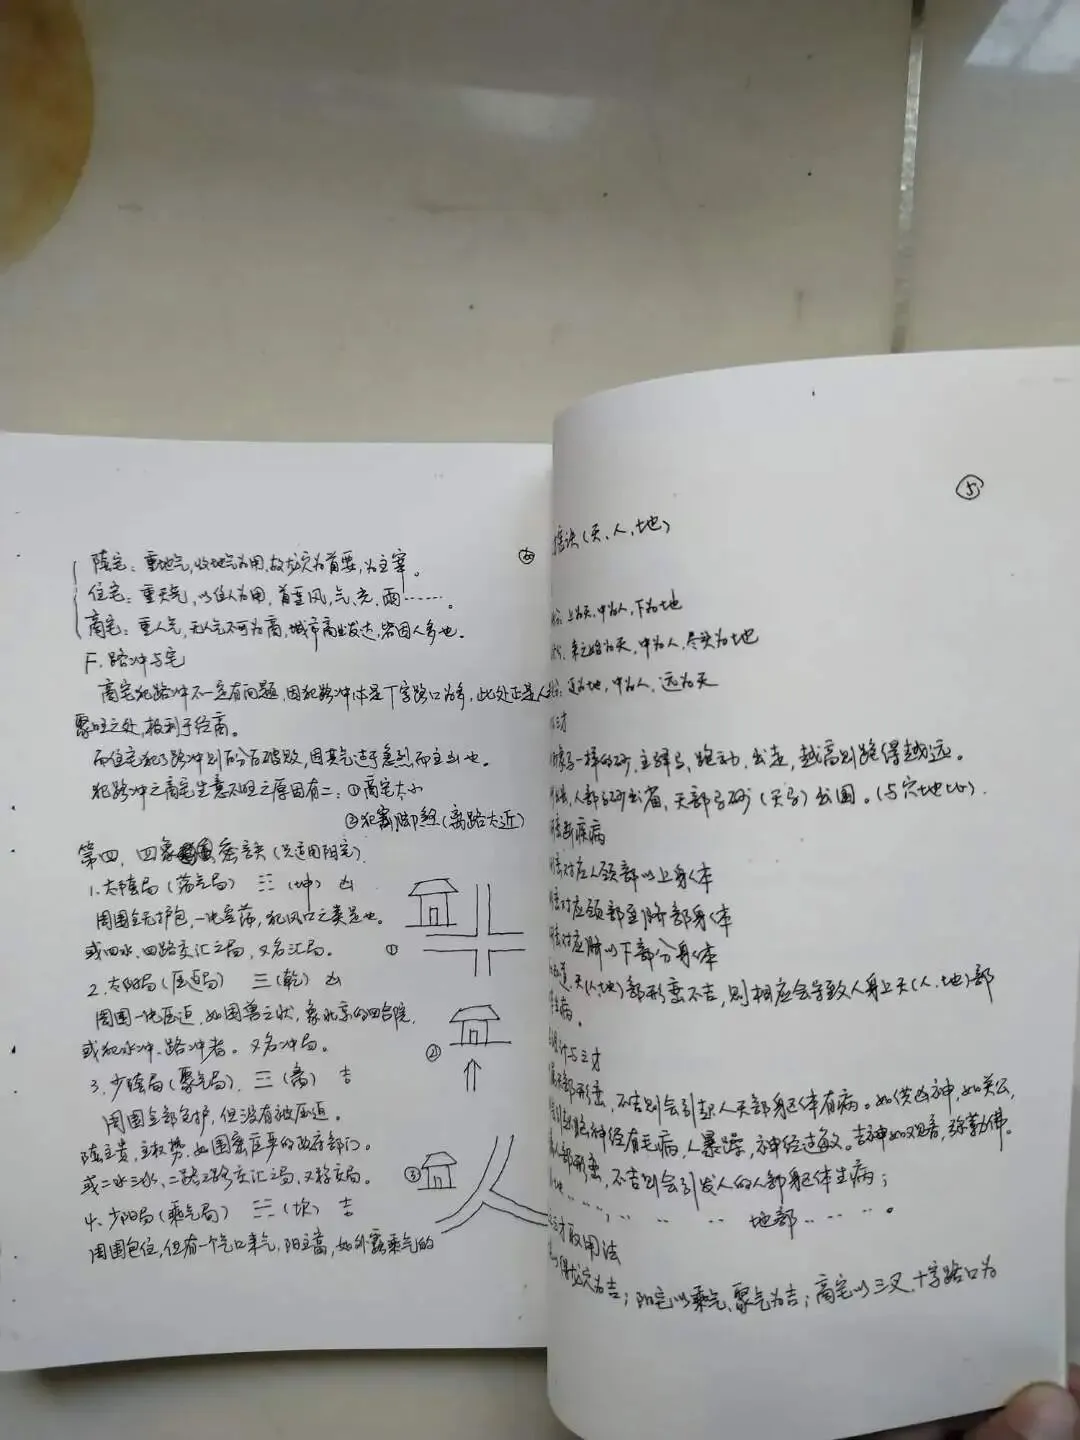 ⑥
阴宅：重地气，收地气为用，故龙穴为首要，为主宰。
住宅：重天气，以住人为用，首重风，气，光，雨……。
商宅：重人气，无人气不可为商，城市商业发达，皆因人多也。
F. 路冲与宅
商宅犯路冲不一定有问题，因犯路冲体是丁字路口为多，此处正是人
聚旺之处，极利于经商。
而住宅犯了路冲则百分百破败，因其气过于急烈而主凶也。
犯路冲之商宅生意不旺之原因有二：①商宅太小
②犯割脚煞（离路太近）
第四、四象秘诀（只适用阳宅）
1. 太阴局（荡气局） ☷（坤） 凶
周围全无护包，一片空荡，犯风口之类是也。
或四水、四路交汇之局，又名汇局。
2. 太阳局（压迫局） ☰（乾） 凶
周围一片压迫，如困兽之状，象北京的四合院，
或犯水冲、路冲者。又名冲局。
3. 少阴局（聚气局） 三（离） 吉
周围全部包护，但没有被压迫。
阴主贵，主权势，如围密庄严的政府部门。
或二水三水，二路三路交汇之局，又称交局。
4. 少阳局（乘气局） （坎） 吉
周围包住，但有一个气口来气，阳主富，如外露乘气的
①
②
③
⑤
诀（天、人、地）
上为天，中为人，下为地
来之始为天，中为人，尽头为地
近为地，中为人，远为天
三才
一样的砂，主驿马、跑动、出走，越高则跑得越远。
人部马砂出省，天部马砂（天马）出国。（与穴地比）
断疾病
对应人颈部以上身体
对应颈部至脐部身体
对应脐以下部分身体
天（人、地）部形峦不吉，则相应会导致人身上天（人、地）部
生病。
与三才
部形峦，不吉则会引起人天部身体有病。如供凶神，如关公，
神经有毛病，人暴躁，神经过敏。吉神如观音，弥勒佛。
部形峦，不吉则会引发人的人部身体生病；
地部……。
三才取用法
得龙穴为吉；阳宅以乘气、聚气为吉；商宅以三叉、十字路口为